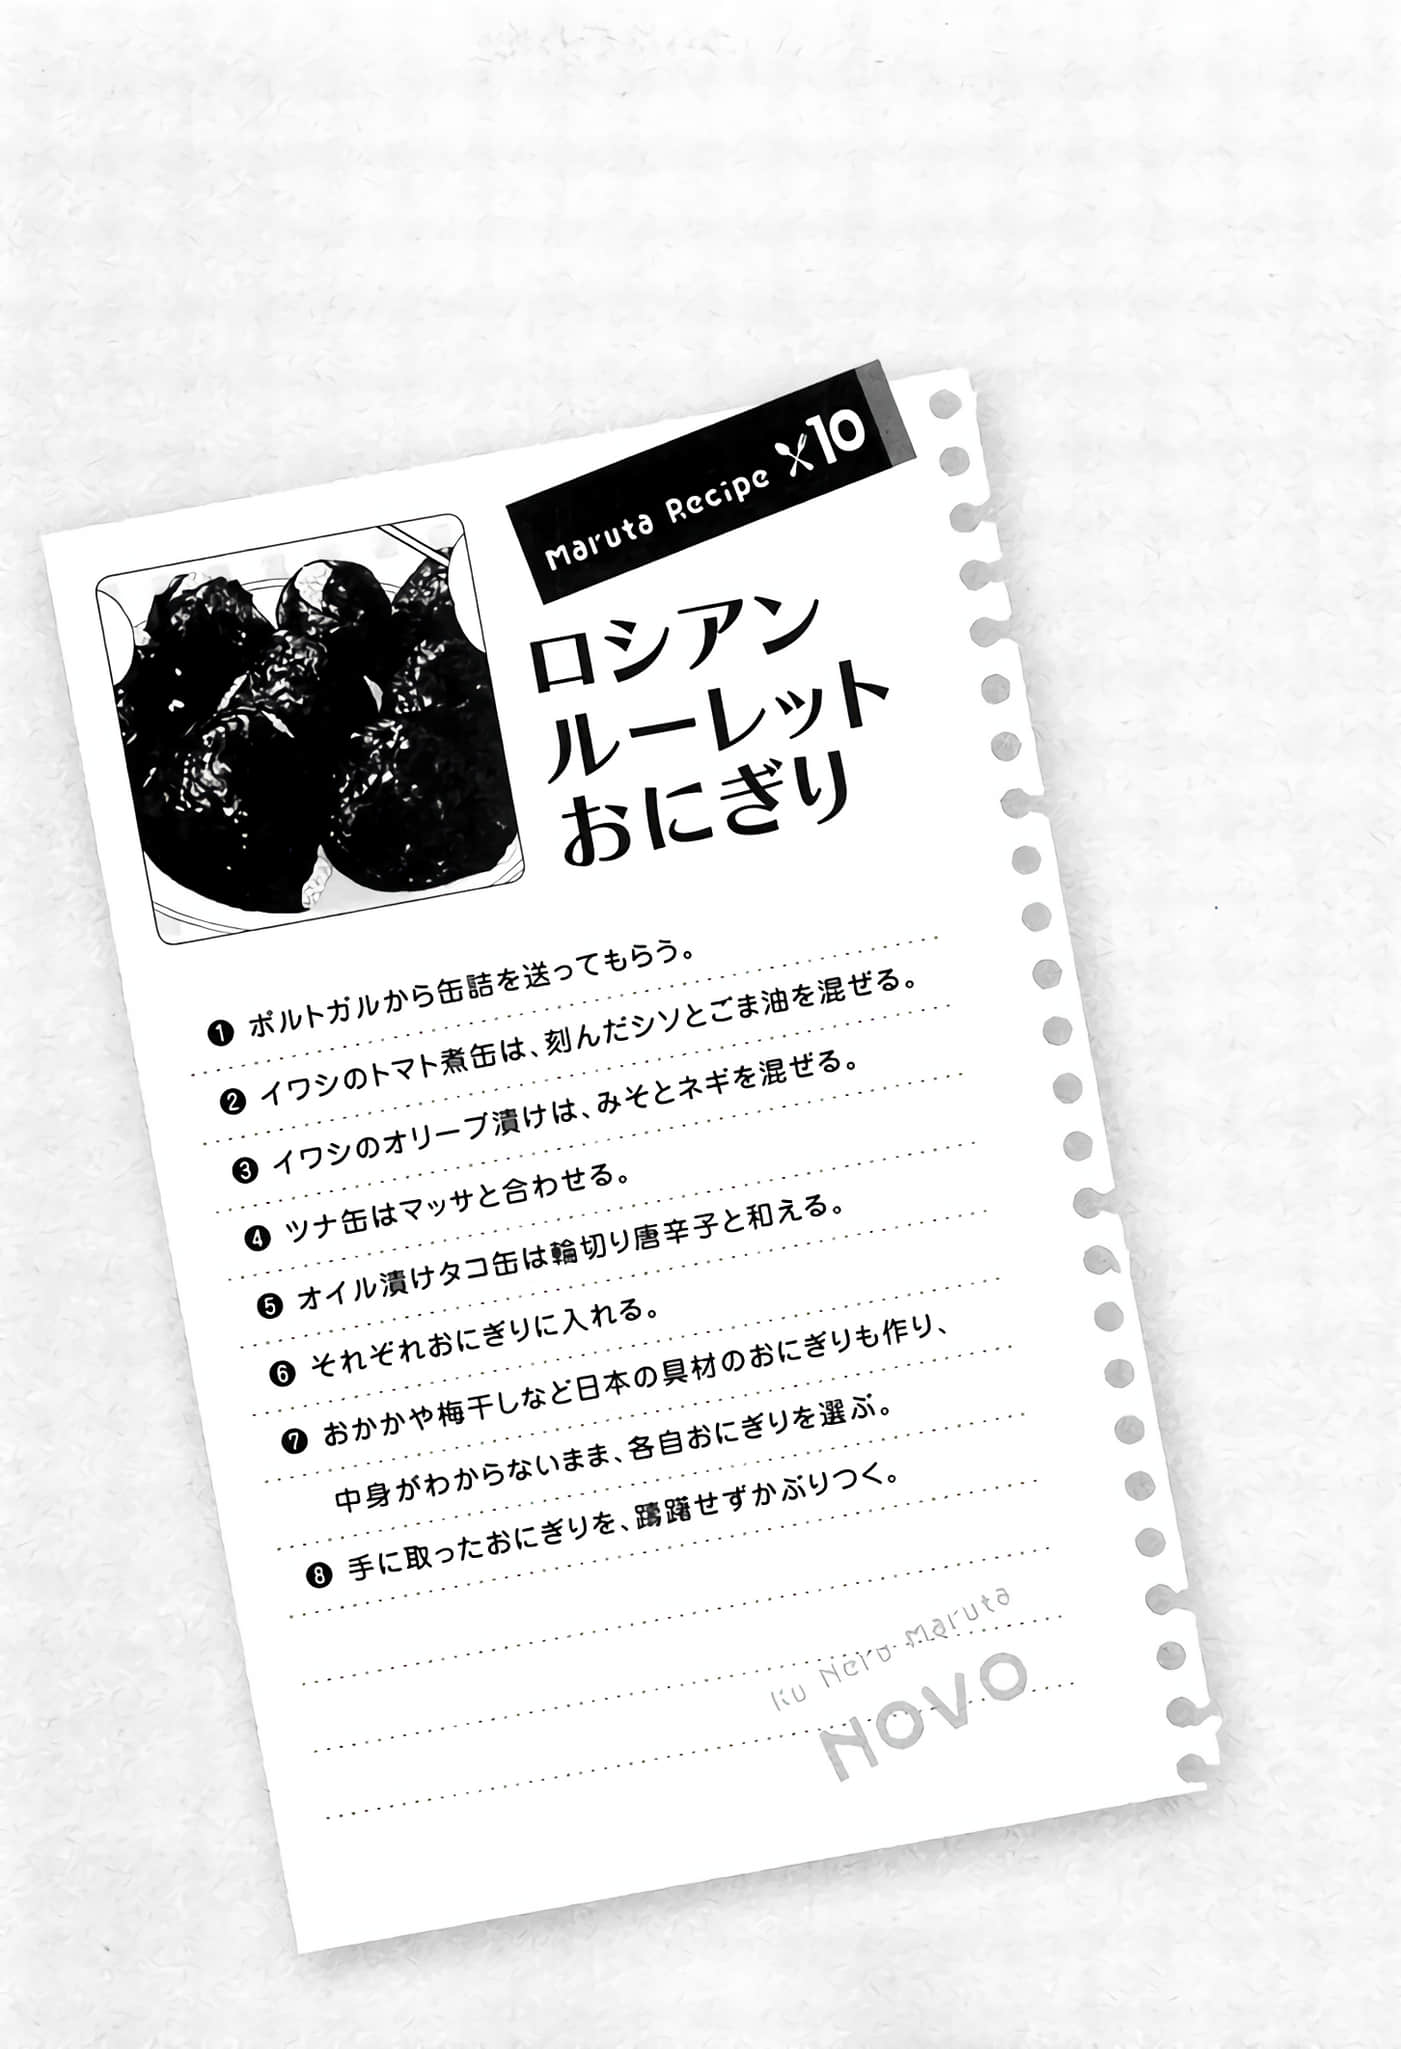 Maruta Recipe 10
ロシアン
ルーレット
おにぎり
❶ ポルトガルから缶詰を送ってもらう。
❷ イワシのトマト煮缶は、刻んだシソとごま油を混ぜる。
❸ イワシのオリーブ漬けは、みそとネギを混ぜる。
❹ ツナ缶はマッサと合わせる。
❺ オイル漬けタコ缶は輪切り唐辛子と和える。
❻ それぞれおにぎりに入れる。
❼ おかかや梅干しなど日本の具材のおにぎりも作り、
中身がわからないまま、各自おにぎりを選ぶ。
❽ 手に取ったおにぎりを、躊躇せずかぶりつく。
Ku Neru Maruta
NOVO